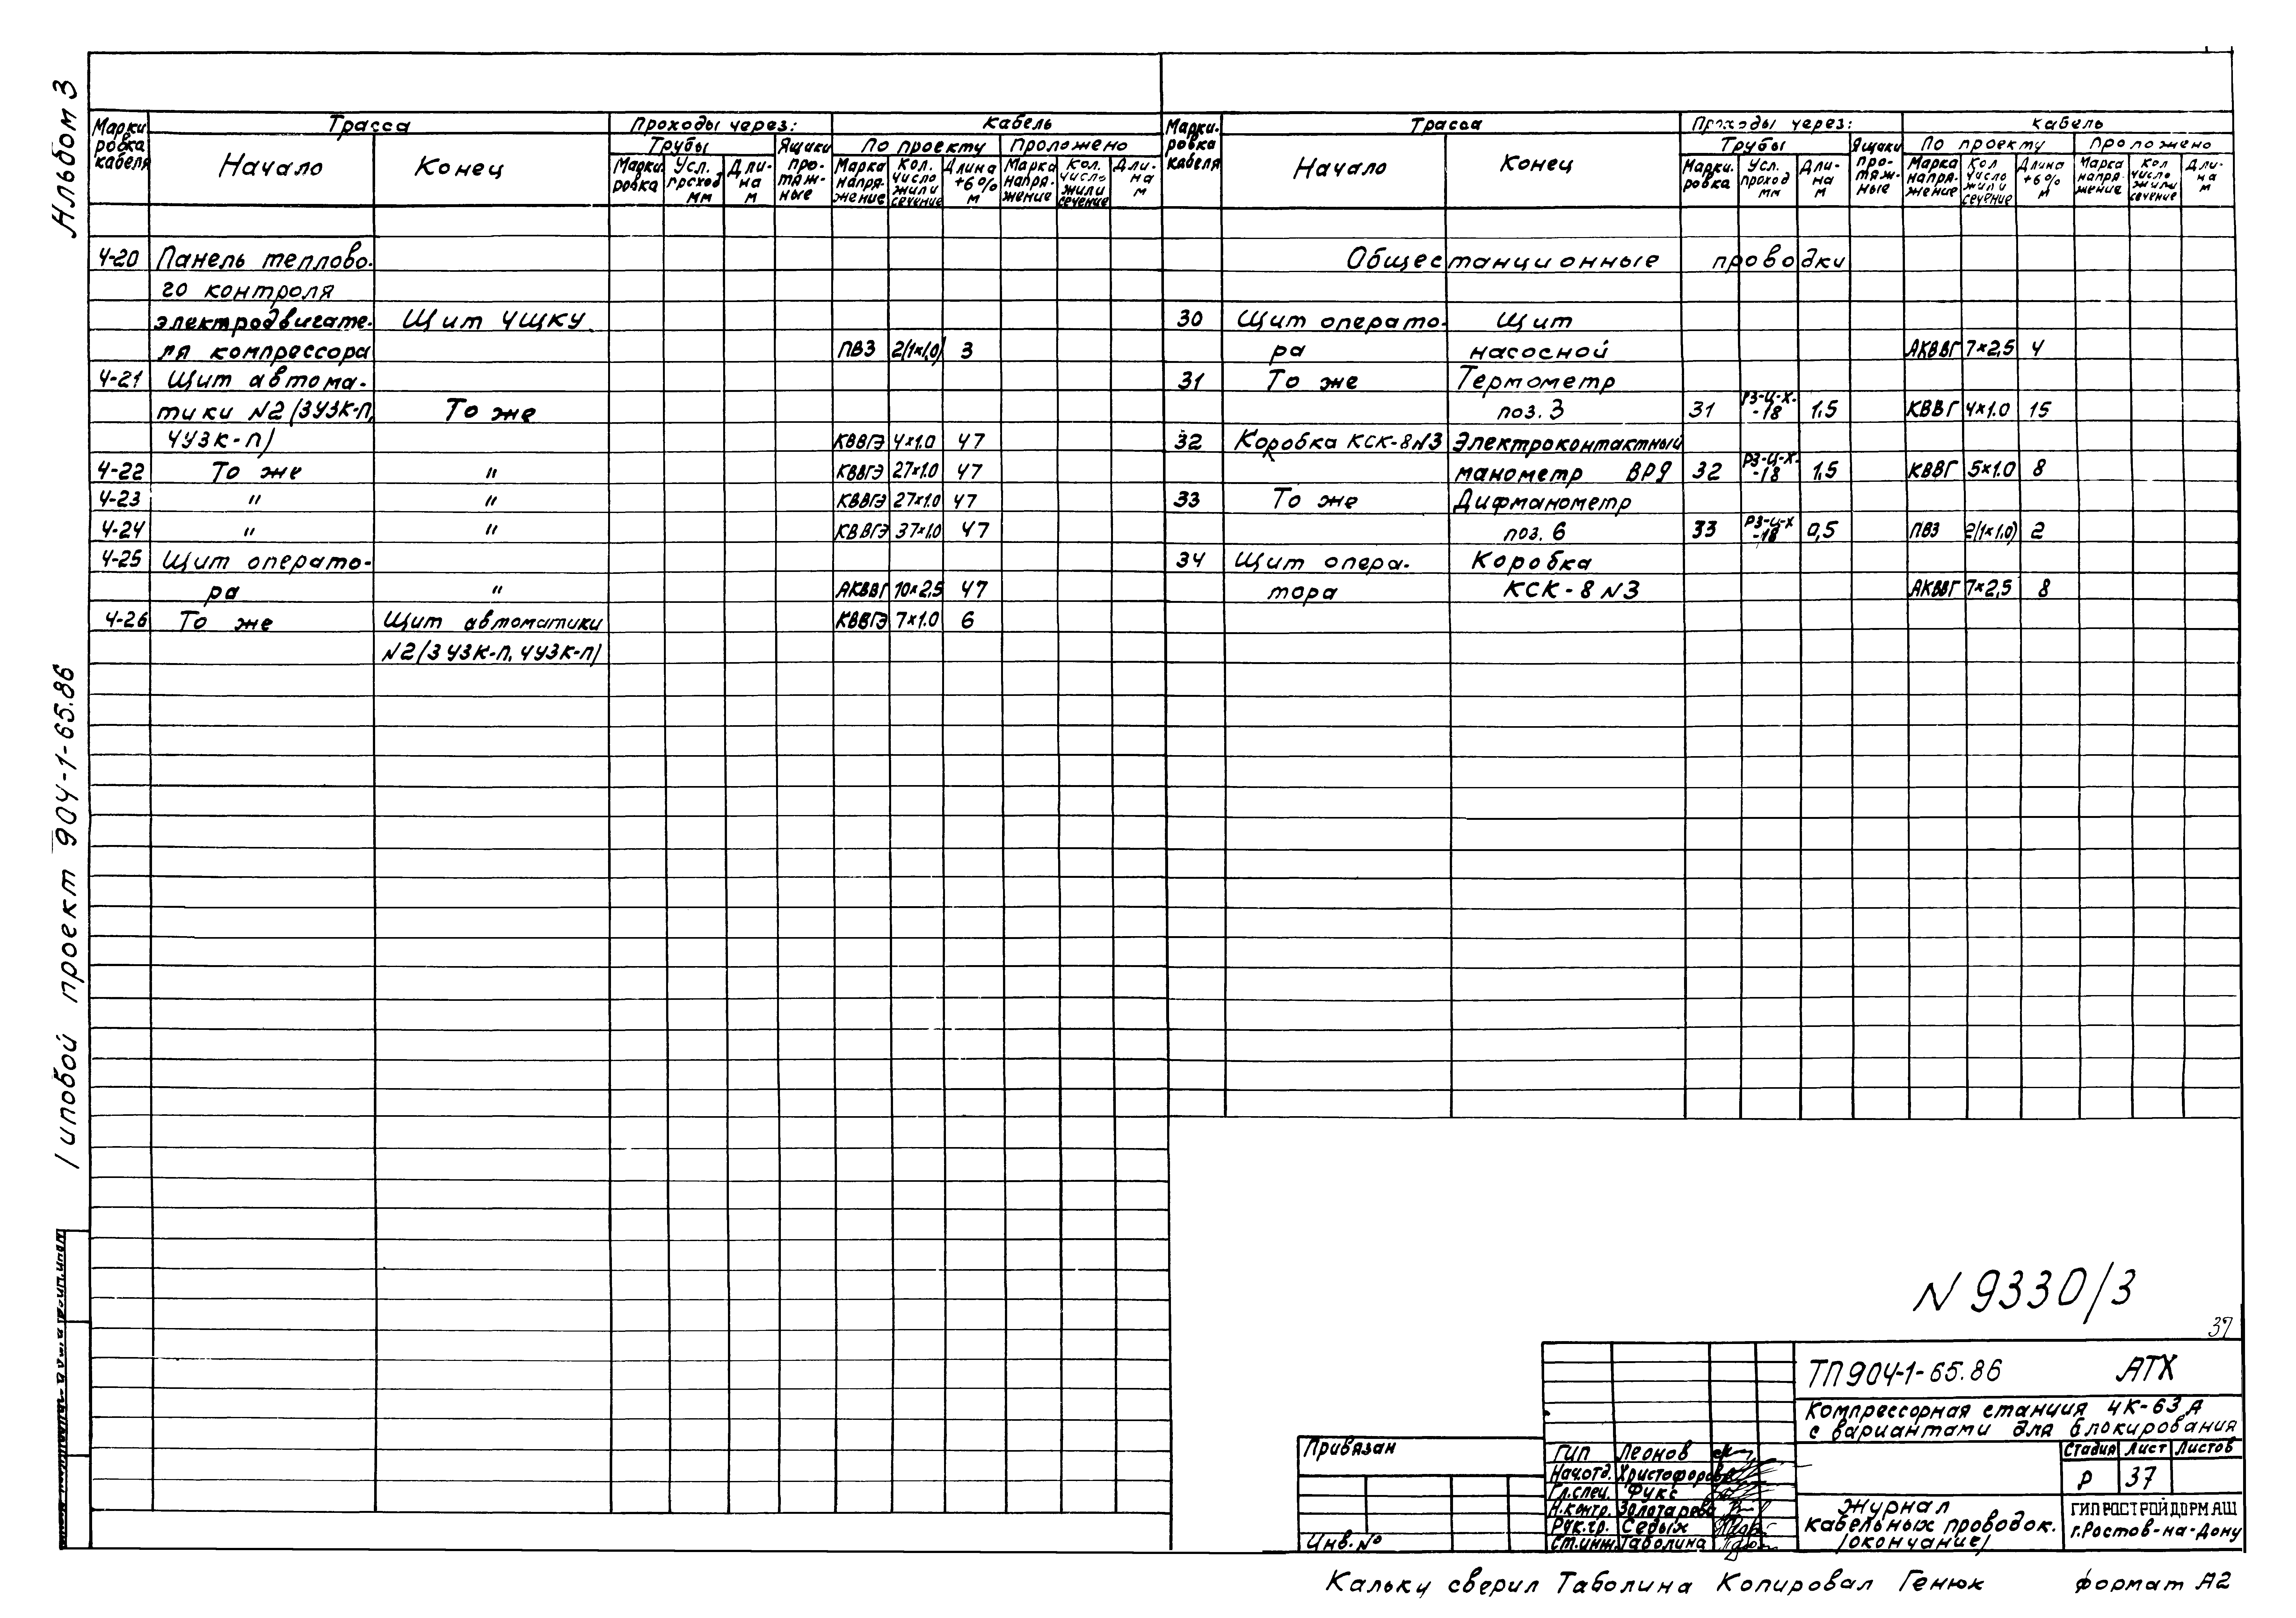 Альбом 3
Типовой проект 904-1-65.86
Марки ровка кабеля | Трасса | Проходы через: | Кабель
Трубы | Ящики про- тяж- ные | По проекту | Проложено
Начало | Конец | Марки ровка | Усл. проход мм | Дли- на м | Марка напря- жение | Кол. число жил и сечение | Длина +6% м | Марка напря- жение | Кол. число жил и сечение | Дли- на м
4-20 Панель теплово-
го контроля
электродвигате- Щит ЧЩКУ
ля компрессора ПВ3 2(1×1,0) 3
4-21 Щит автома-
тики N2 (3УЗК-П, То же
4УЗК-П) КВВГЭ 4×1.0 47
4-22 То же " КВВГЭ 27×1.0 47
4-23 " " КВВГЭ 27×1.0 47
4-24 " " КВВГЭ 37×1.0 47
4-25 Щит операто-
ра " АКВВГ 10×2,5 47
4-26 То же Щит автоматики КВВГЭ 7×1.0 6
N2 (3УЗК-П, 4УЗК-П)
Марки- ровка кабеля | Трасса | Проходы через: | Кабель
Трубы | Ящики про- тяж- ные | По проекту | Проложено
Начало | Конец | Марки- ровка | Усл. проход мм | Дли- на м | Марка напря- жение | Кол число жил и сечение | Длина +6% м | Марка напря- жение | Кол число жил и сечение | Дли- на м
Общестанционные проводки
30 Щит операто- Щит
ра насосной АКВВГ 7×2,5 4
31 То же Термометр
поз. 3 31 РЗ-Ц-Х- -18 1,5 КВВГ 4×1.0 15
32 Коробка КСК-8 N3 Электроконтактный
манометр ВРД 32 РЗ-Ц-Х- -18 1,5 КВВГ 5×1.0 8
33 То же Дифманометр
поз. 6 33 РЗ-Ц-Х -18 0,5 ПВ3 2(1×1,0) 2
34 Щит опера- Коробка
тора КСК-8 N3 АКВВГ 7×2,5 8
N 9330/3
37
ТП 904-1-65.86 АТХ
Компрессорная станция 4К-63А
с вариантами для блокирования
Стадия Лист Листов
Р 37
Журнал
кабельных проводок.
/окончание/
ГИПРОСТРОЙДОРМАШ
г.Ростов-на-Дону
Привязан
Инв. №
ГИП Леонов
Нач.отд. Христофоров
Гл.спец. Фукс
Н.контр. Золотарева
Рук.гр. Седых
Ст.инж. Таболина
Кальку сверил Таболина Копировал Генюк формат А2